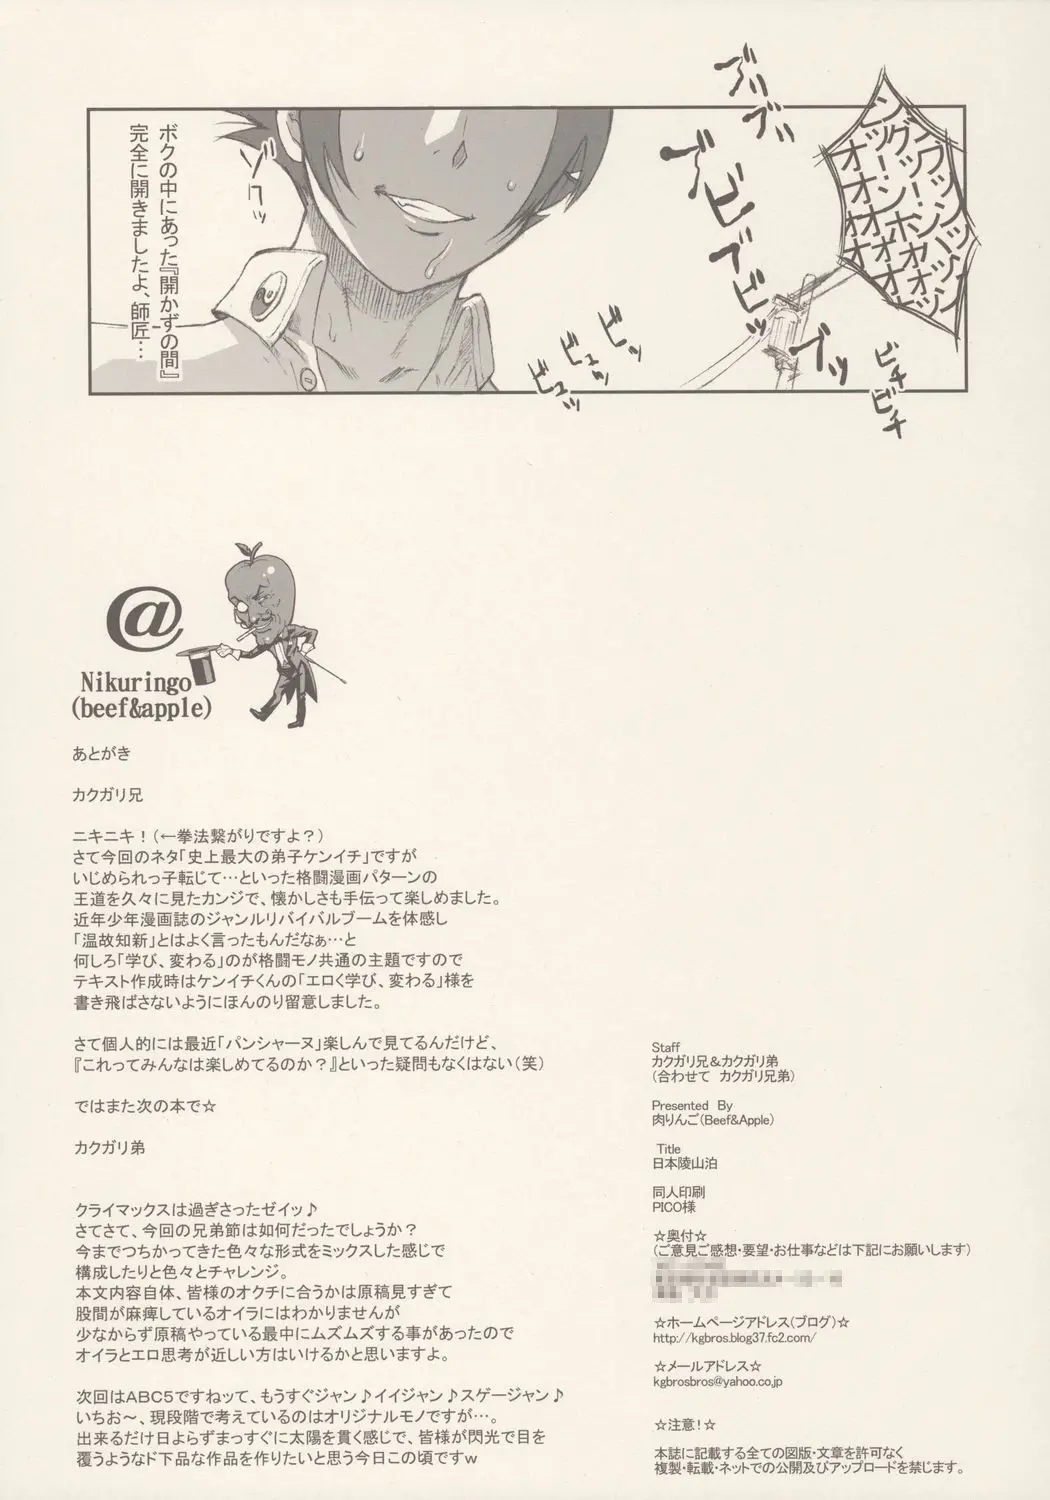 ボクの中にあった『開かずの間』
完全に開きましたよ、師匠…
ゾクッ
ブリ
ブッ
ビビ
ブビ
ビッ
ブッ
ビッ
ビュッ
ビュッ
ビチ
ビチ
@
Nikuringo
(beef&apple)
あとがき
カクガリ兄
ニキニキ！（←拳法繋がりですよ？）
さて今回のネタ「史上最大の弟子ケンイチ」ですが
いじめられっ子転じて…といった格闘漫画パターンの
王道を久々に見たカンジで、懐かしさも手伝って楽しめました。
近年少年漫画誌のジャンルリバイバルブームを体感し
「温故知新」とはよく言ったもんだなぁ…と
何しろ「学び、変わる」のが格闘モノ共通の主題ですので
テキスト作成時はケンイチくんの「エロく学び、変わる」様を
書き飛ばさないようにほんのり留意しました。
さて個人的には最近「パンシャーヌ」楽しんで見てるんだけど、
『これってみんなは楽しめてるのか？』といった疑問もなくはない（笑）
ではまた次の本で☆
カクガリ弟
クライマックスは過ぎさったゼイッ♪
さてさて、今回の兄弟節は如何だったでしょうか？
今までつちかってきた色々な形式をミックスした感じで
構成したりと色々とチャレンジ。
本文内容自体、皆様のオクチに合うかは原稿見すぎて
股間が麻痺しているオイラにはわかりませんが
少なからず原稿やっている最中にムズムズする事があったので
オイラとエロ思考が近しい方はいけるかと思いますよ。
次回はＡＢＣ５ですねッて、もうすぐジャン♪イイジャン♪スゲージャン♪
いちお～、現段階で考えているのはオリジナルモノですが…。
出来るだけ日よらずまっすぐに太陽を貫く感じで、皆様が閃光で目を
覆うようなド下品な作品を作りたいと思う今日この頃ですｗ
Staff
カクガリ兄＆カクガリ弟
（合わせて　カクガリ兄弟）
Presented By
肉りんご（Beef&Apple）
Title
日本陵山泊
同人印刷
PICO様
☆奥付☆
（ご意見ご感想・要望・お仕事などは下記にお願いします）
☆ホームページアドレス（ブログ）☆
http://kgbros.blog37.fc2.com/
☆メールアドレス☆
kgbrosbros@yahoo.co.jp
☆注意！☆
本誌に記載する全ての図版・文章を許可なく
複製・転載・ネットでの公開及びアップロードを禁じます。